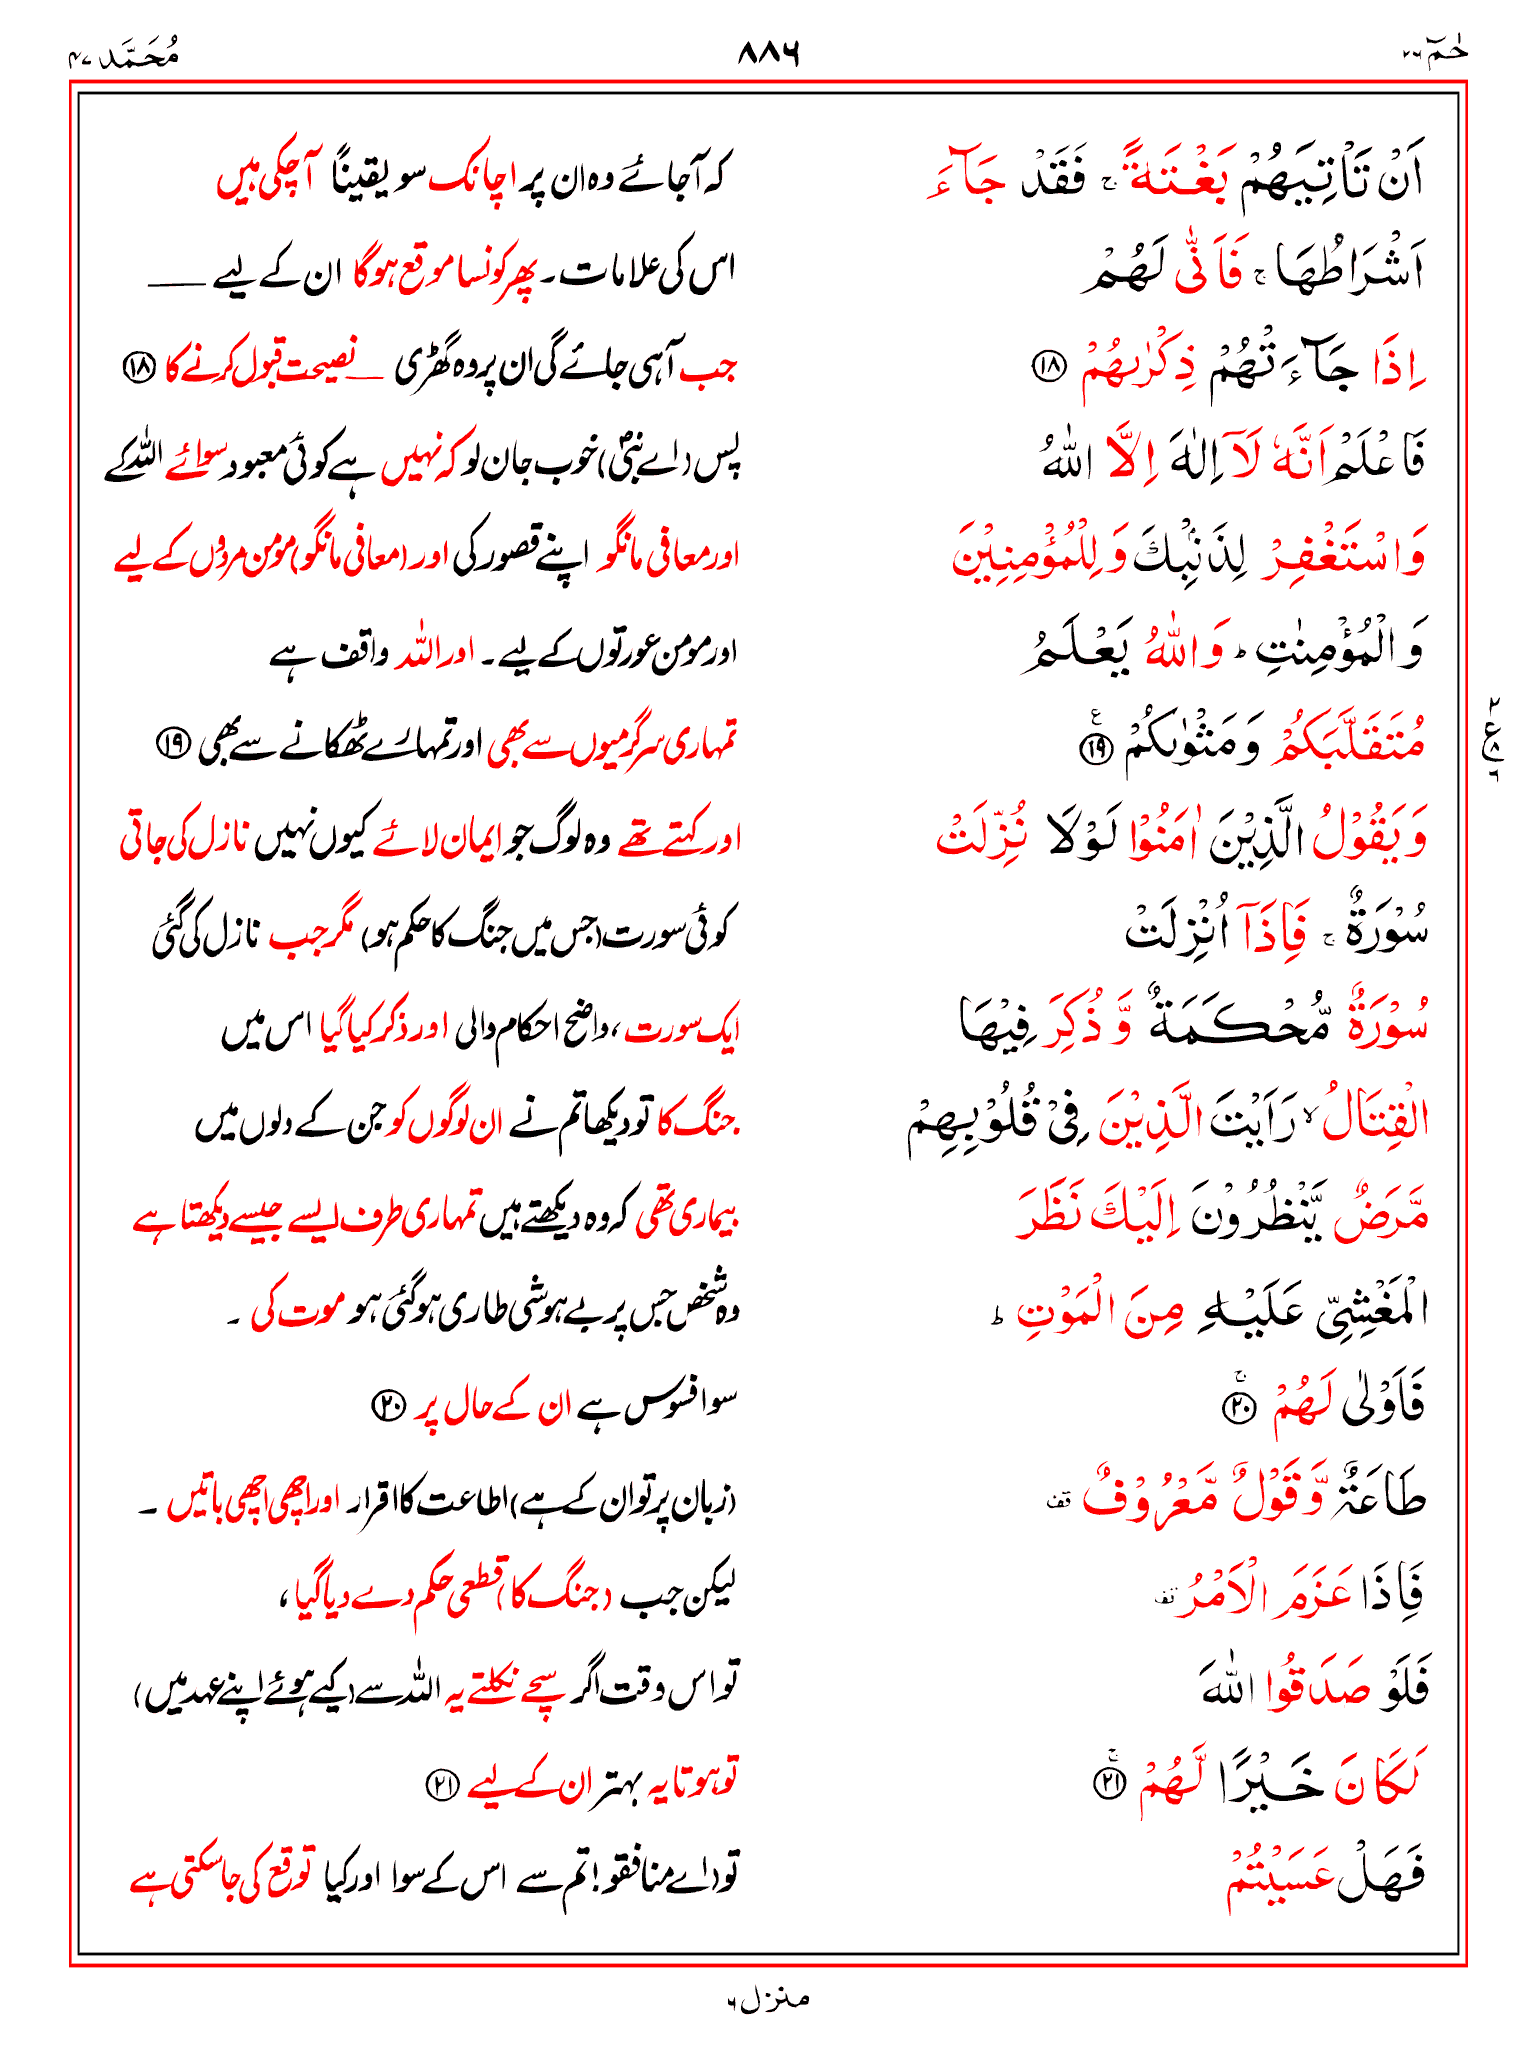 حٰمٓ ٢٦ ٨٨٦ مُحَمَّد ٤٧
اَنْ تَاْتِيَهُمْ بَغْتَةً ۚ فَقَدْ جَآءَ کہ آجائے وہ ان پر اچانک سو یقیناً آچکی ہیں
اَشْرَاطُهَا ۚ فَاَنّٰى لَهُمْ اس کی علامات۔ پھر کونسا موقع ہوگا ان کے لیے __
اِذَا جَآءَتْهُمْ ذِكْرٰىهُمْ ⑱ جب آہی جائے گی ان پر وہ گھڑی __ نصیحت قبول کرنے کا ⑱
فَاعْلَمْ اَنَّهٗ لَآ اِلٰهَ اِلَّا اللّٰهُ پس (اے نبیؐ) خوب جان لو کہ نہیں ہے کوئی معبود سوائے اللہ کے
وَاسْتَغْفِرْ لِذَنْۢبِكَ وَلِلْمُؤْمِنِيْنَ اور معافی مانگو اپنے قصور کی اور (معافی مانگو) مومن مردوں کے لیے
وَالْمُؤْمِنٰتِ ؕ وَاللّٰهُ يَعْلَمُ اور مومن عورتوں کے لیے۔ اور اللہ واقف ہے
مُتَقَلَّبَكُمْ وَمَثْوٰىكُمْ ⑲ ع تمہاری سرگرمیوں سے بھی اور تمہارے ٹھکانے سے بھی ⑲
٢ ع ٨ ٦
وَيَقُوْلُ الَّذِيْنَ اٰمَنُوْا لَوْلَا نُزِّلَتْ اور کہتے تھے وہ لوگ جو ایمان لائے کیوں نہیں نازل کی جاتی
سُوْرَةٌ ۚ فَاِذَآ اُنْزِلَتْ کوئی سورت (جس میں جنگ کا حکم ہو) مگر جب نازل کی گئی
سُوْرَةٌ مُّحْكَمَةٌ وَّذُكِرَ فِيْهَا ایک سورت، واضح احکام والی اور ذکر کیا گیا اس میں
الْقِتَالُ ۙ رَاَيْتَ الَّذِيْنَ فِيْ قُلُوْبِهِمْ جنگ کا تو دیکھا تم نے ان لوگوں کو جن کے دلوں میں
مَّرَضٌ يَّنْظُرُوْنَ اِلَيْكَ نَظَرَ بیماری تھی کہ وہ دیکھتے ہیں تمہاری طرف ایسے جیسے دیکھتا ہے
الْمَغْشِيِّ عَلَيْهِ مِنَ الْمَوْتِ ؕ وہ شخص جس پر بے ہوشی طاری ہوگئی ہو موت کی ۔
فَاَوْلٰى لَهُمْ ⑳ ۚ سو افسوس ہے ان کے حال پر ⑳
طَاعَةٌ وَّقَوْلٌ مَّعْرُوْفٌ قف (زبان پر تو ان کے ہے) اطاعت کا اقرار اور اچھی اچھی باتیں ۔
فَاِذَا عَزَمَ الْاَمْرُ قف لیکن جب (جنگ کا) قطعی حکم دے دیا گیا،
فَلَوْ صَدَقُوا اللّٰهَ تو اس وقت اگر سچے نکلتے یہ اللہ سے (کیے ہوئے اپنے عہد میں)
لَكَانَ خَيْرًا لَّهُمْ ㉑ ۚ تو ہوتا یہ بہتر ان کے لیے ㉑
فَهَلْ عَسَيْتُمْ تو (اے منافقو! تم سے اس کے سوا اور کیا توقع کی جاسکتی ہے
منزل ٦